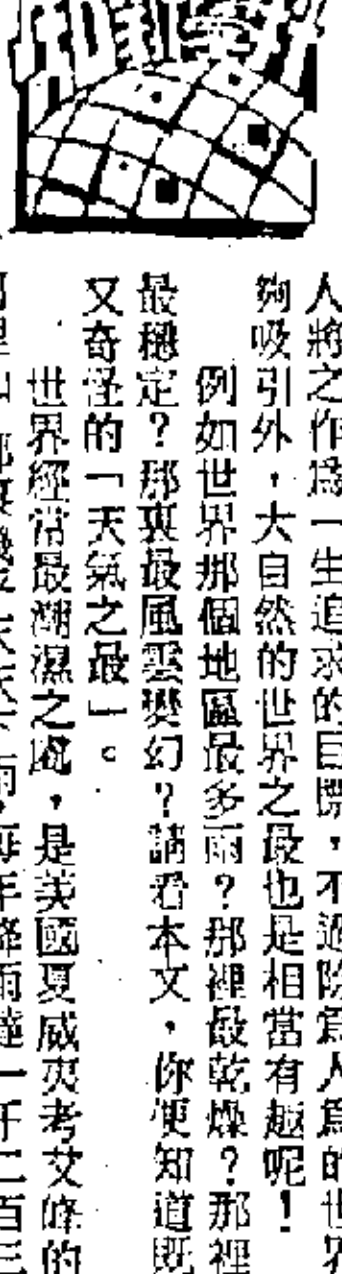 人將之作為一生追求的目標，不過除為人為的世界
夠吸引外，大自然的世界之最也是相當有趣呢！
例如世界那個地區最多雨？那裡最乾燥？那裡
最穩定？那裏最風雲變幻？請看本文，你便知道既
又奇怪的「天氣之最」。
世界經常最潮濕之處，是美國夏威夷考艾峰的
天天下雨，每年降雨達一千二百三